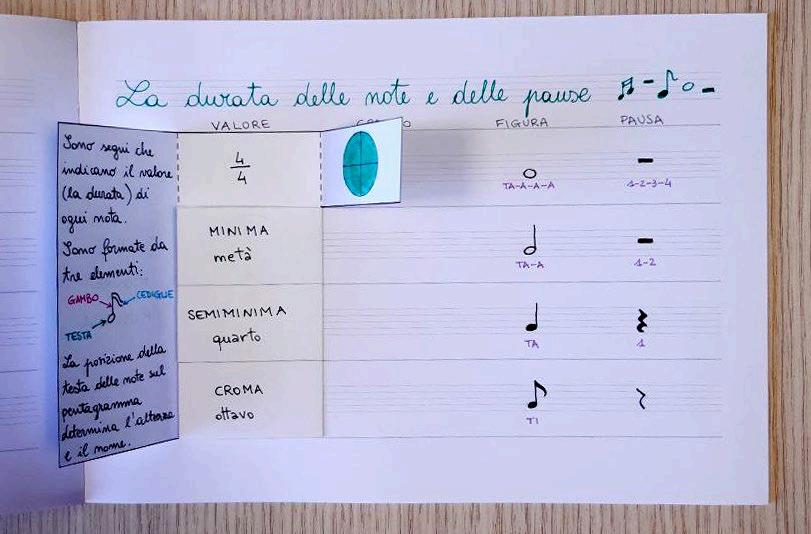 La durata delle note e delle pause
VALORE
FIGURA
PAUSA
Sono segni che
indicano il valore
(la durata) di
ogni nota.
Sono formate da
tre elementi:
GAMBO
CEDIGLIE
TESTA
La posizione della
testa delle note sul
pentagramma
determina l'altezza
e il nome.
4
4
TA-A-A-A
1-2-3-4
MINIMA
metà
TA-A
1-2
SEMIMINIMA
quarto
TA
1
CROMA
ottavo
TI